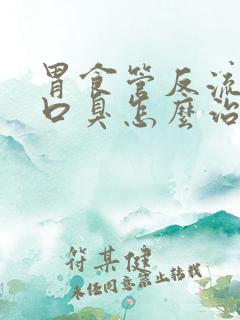 胃食管反流
口臭怎麼治
符某健
未经同意禁止转载